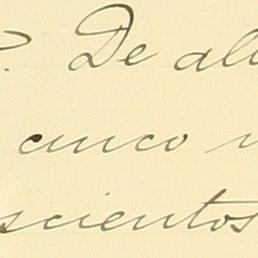 ? De all
cinco
scientos